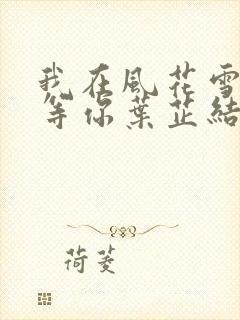 我在風花雪
等你葉芷結
荷菱